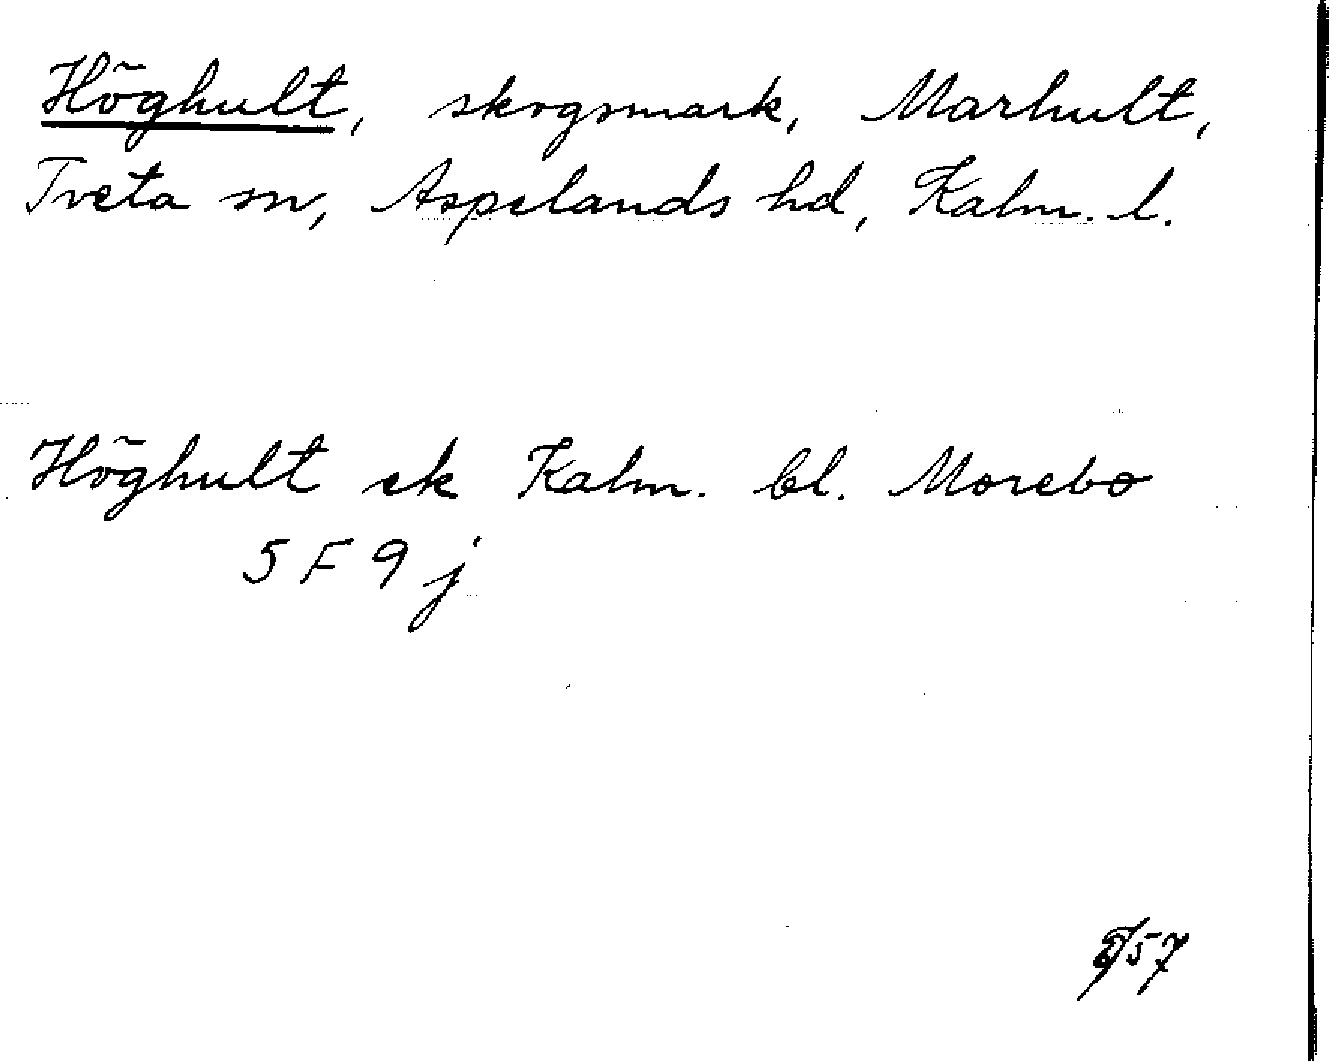 Höghult, skogsmark, Marhult,
Tveta sn, Aspelands hd, Kalm. l.
Höghult ek Kalm. bl. Morebo
5 F 9 j
57